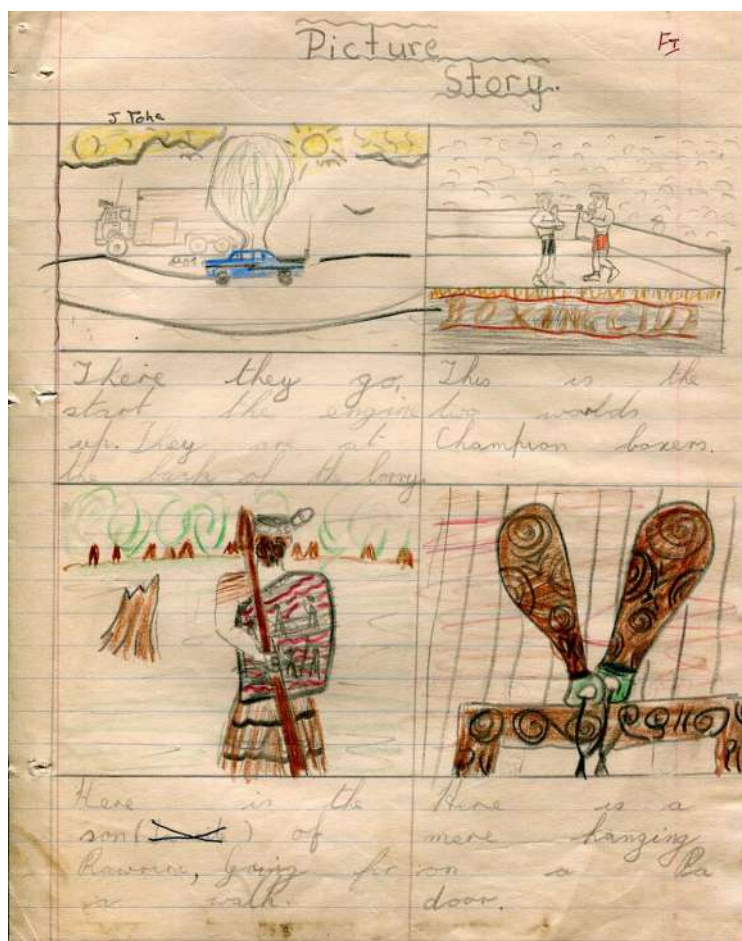 Picture
Story.
J Toha
There they go,
start the engine
up. They are at
the back of the lorry.
This is the
two worlds
Champion boxers.
Here is the
son ( ) of
going for
a walk.
Here is a
mere hanging
on a Pa
door.